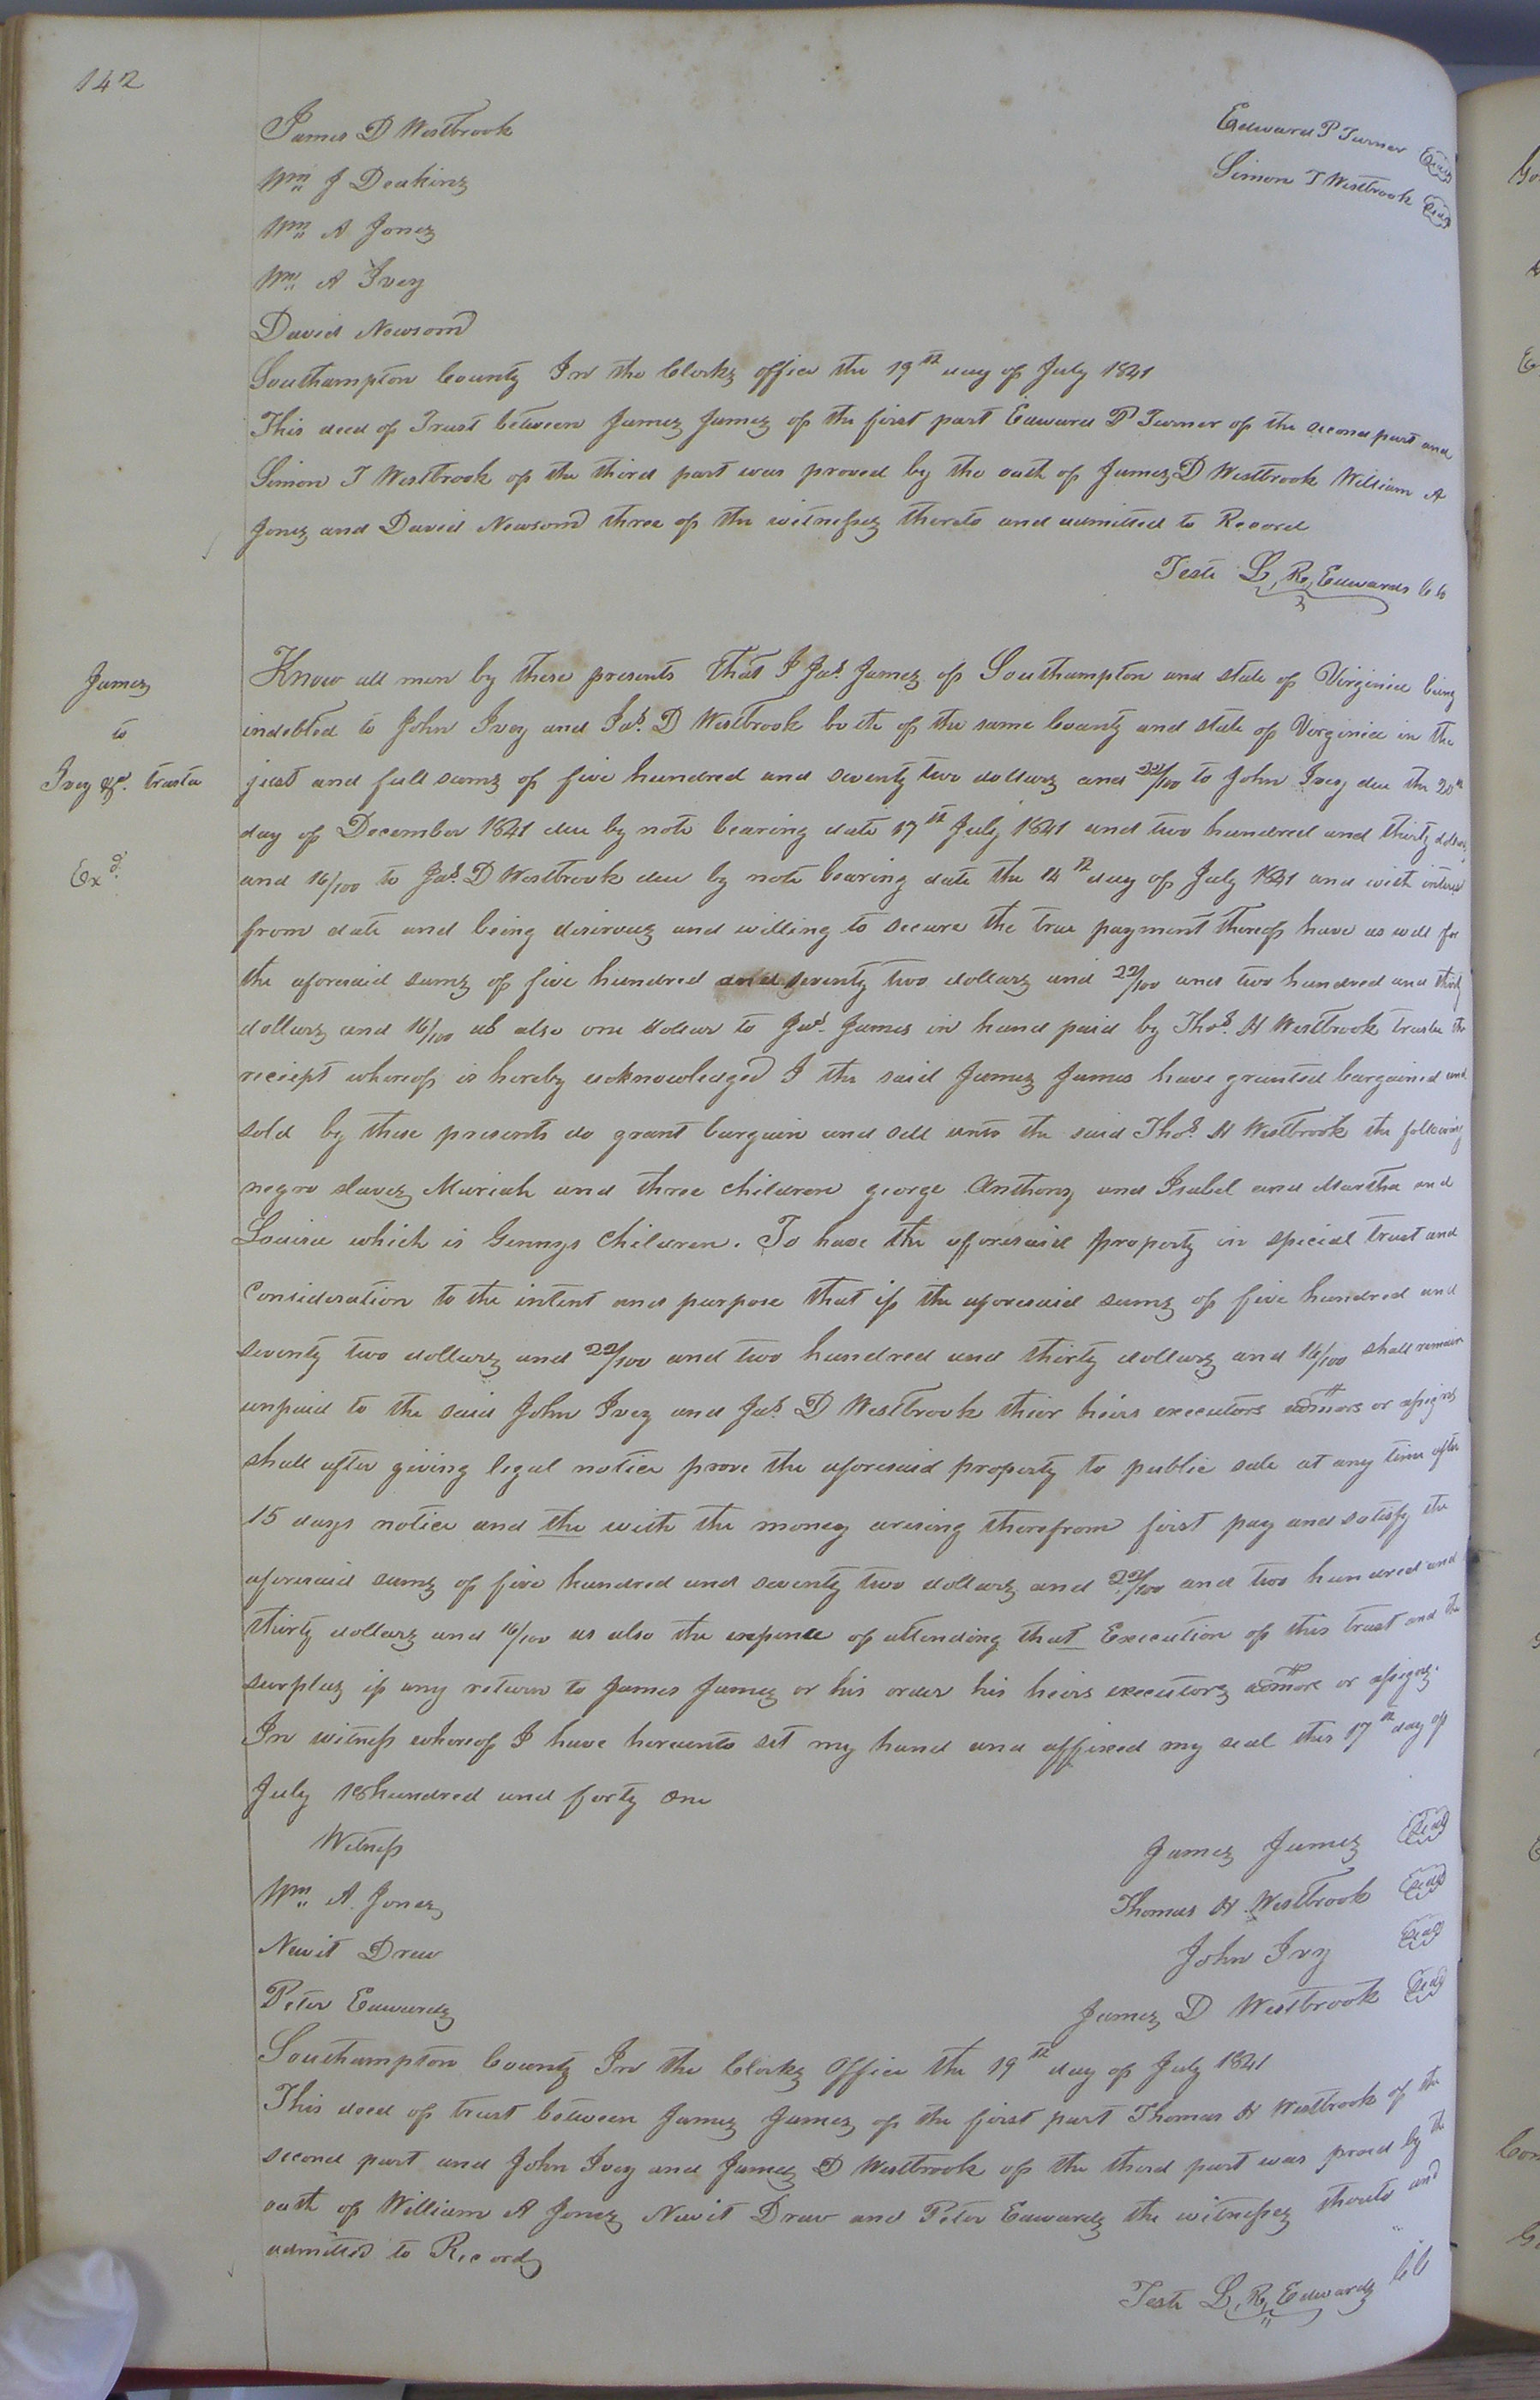 142
James D Westbrook
Edward P Turner Seal
Wm J Deakins
Simon T Westbrook Seal
Wm A Jones
Wm A Ivey
David Newsom
Southampton County In the Clerks office the 19th day of July 1841
This deed of Trust between James James of the first part Edward P Turner of the second part and
Simon T Westbrook of the third part was proved by the oath of James D Westbrook William A
Jones and David Newsom three of the witnesses thereto and admitted to Record
Teste L. R. Edwards CC
James
to
Ivey &c. trustee
Exd.
Know all men by these presents that I Jas. James of Southampton and state of Virginia being
indebted to John Ivey and Jas. D Westbrook both of the same County and state of Virginia in the
just and full sums of five hundred and seventy two dollars and 22/100 to John Ivey due the 25th
day of December 1841 due by note bearing date 17th July 1841 and two hundred and thirty dollars
and 16/100 to Jas. D Westbrook due by note bearing date the 14th day of July 1841 and with interest
from date and being desirous and willing to secure the true payment thereof have as well for
the aforesaid sums of five hundred and seventy two dollars and 22/100 and two hundred and thirty
dollars and 16/100 as also one dollar to Jas. James in hand paid by Thos. H Westbrook trustee the
reciept whereof is hereby acknowledged I the said James James have granted bargained and
sold by these presents do grant bargain and sell unto the said Thos. H Westbrook the following
negro slaves Mariah and three children george Anthony and Isabel and Martha and
Louisa which is Gennys Children. To have the aforesaid property in special trust and
Consideration to the intent and purpose that if the aforesaid sums of five hundred and
seventy two dollars and 22/100 and two hundred and thirty dollars and 16/100 shall remain
unpaid to the said John Ivey and Jas. D Westbrook their heirs executors admors or assigns
shall after giving legal notice prove the aforesaid property to public sale at any time after
15 days notice and the with the money arising therefrom first pay and satisfy the
aforesaid sums of five hundred and seventy two dollars and 22/100 and two hundred and
thirty dollars and 16/100 as also the expence of attending that Execution of this trust and the
surplus if any return to James James or his order his heirs executors admors or assigns.
In witness whereof I have hereunto set my hand and affixed my seal this 17th day of
July 18hundred and forty one
Witness
James James Seal
Wm A. Jones
Thomas H Westbrook Seal
Newit Drew
John Ivy Seal
Peter Edwards
James D Westbrook Seal
Southampton County In the Clerks Office the 19th day of July 1841
This deed of trust between James James of the first part Thomas H Westbrook of the
second part and John Ivey and James D Westbrook of the third part was proved by the
oath of William A Jones Newit Drew and Peter Edwards the witnesses thereto and
admitted to Record
Teste L. R. Edwards CC